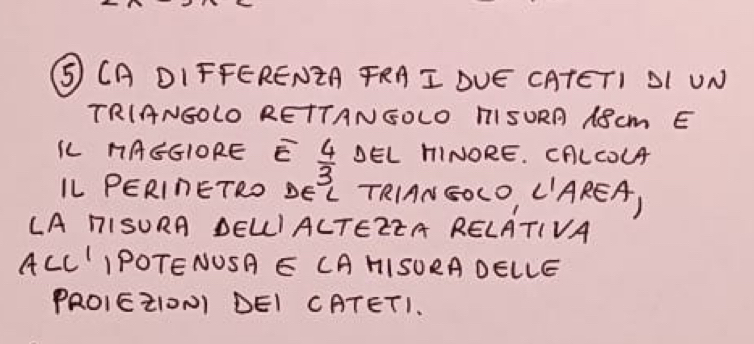 ⑤ LA DIFFERENZA FRA I DUE CATETI DI UN
TRIANGOLO RETTANGOLO MISURA 18cm E
IL MAGGIORE È 4/3 DEL MINORE. CALCOLA
IL PERIMETRO DEL TRIANGOLO, L'AREA,
LA MISURA DELL'ALTEZZA RELATIVA
ALL'IPOTENUSA E LA MISURA DELLE
PROIEZIONI DEI CATETI.